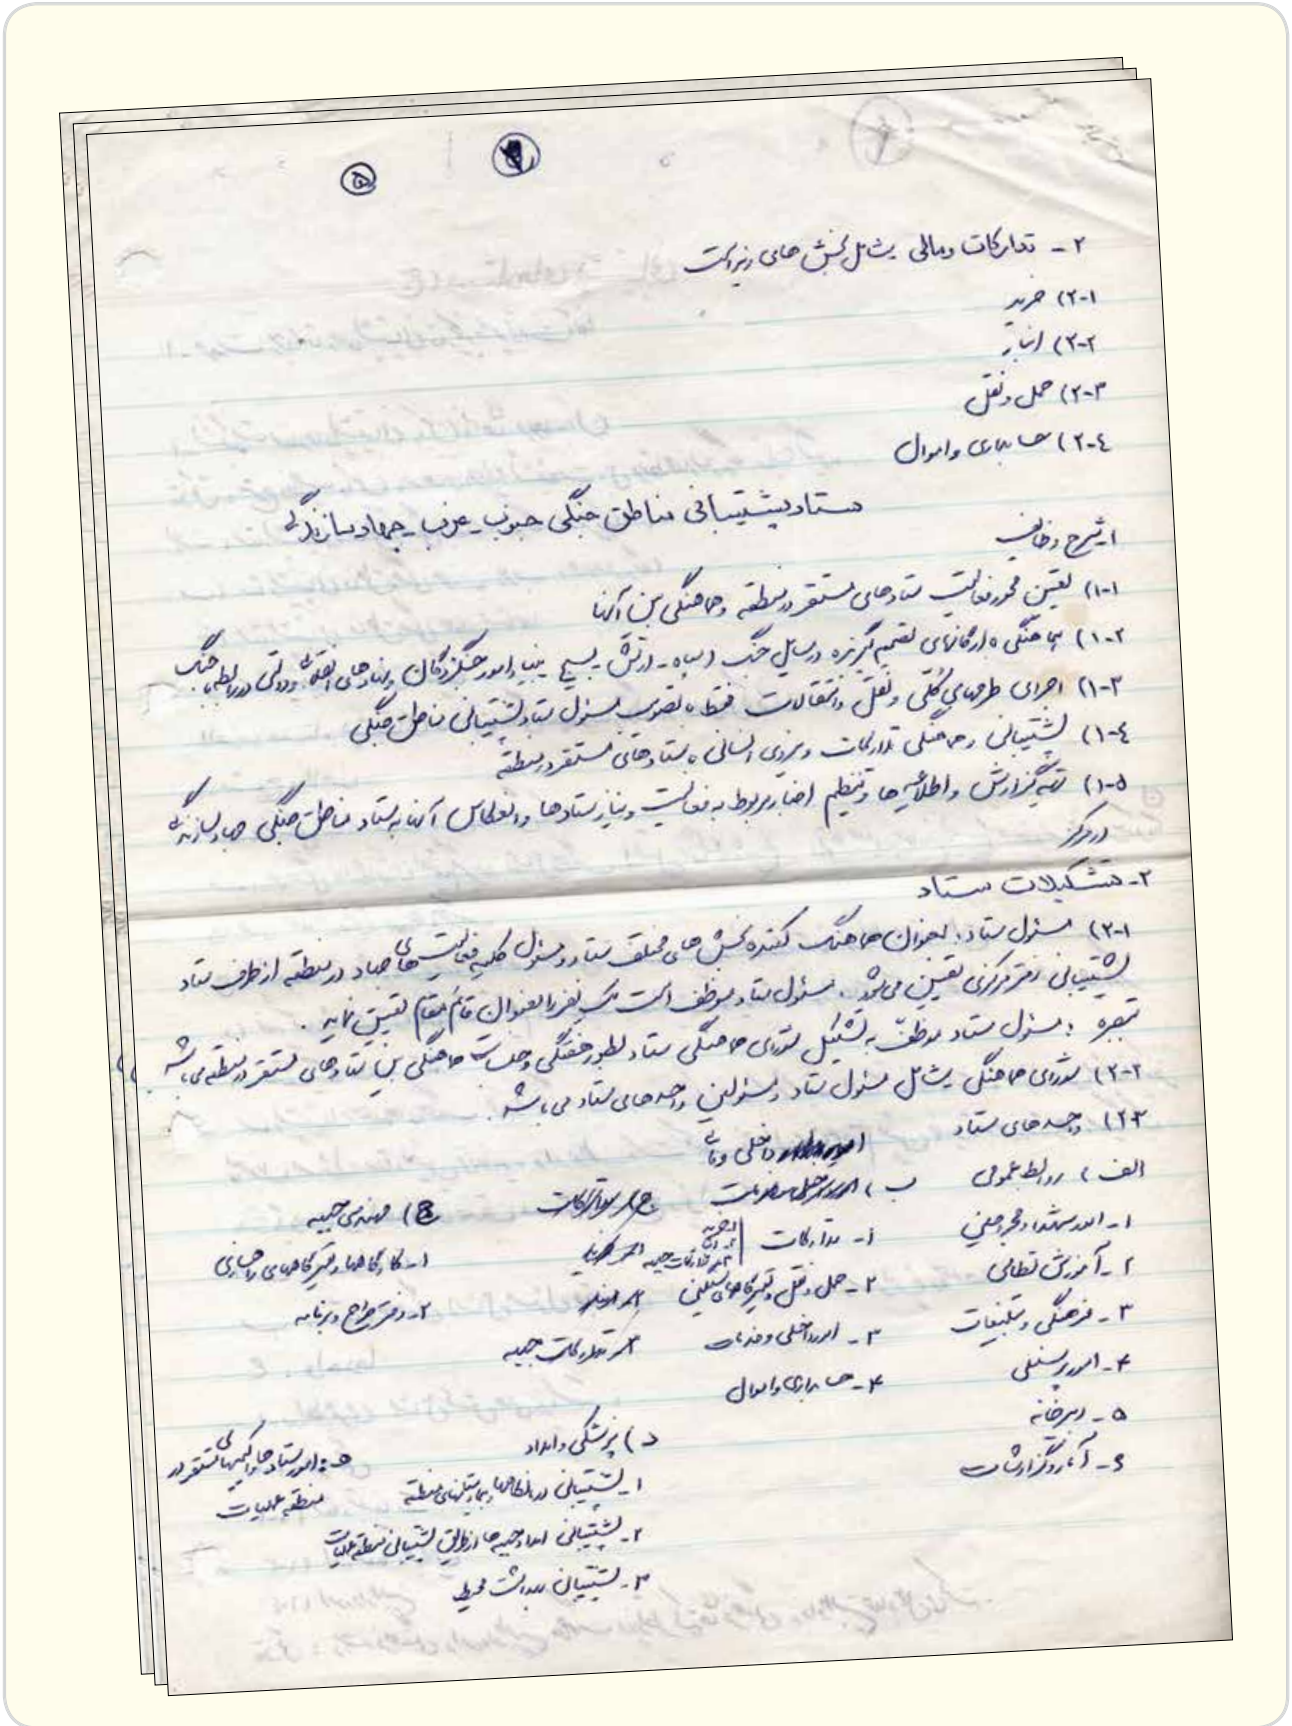 ۵
۲- تدارکات و مالی شامل بخش های زیر است
۲-۱) خرید
۲-۲) انبار
۲-۳) حمل و نقل
۲-۴) حسابداری و اموال
ستاد پشتیبانی مناطق جنگی جنوب - غرب - جهاد سازندگی
۱- شرح وظایف
۱-۱) تعیین محور فعالیت ستادهای مستقر در منطقه و هماهنگی بین آنها
۱-۲) هماهنگی با ارگانهای تصمیم گیرنده در مسایل جنگ (سپاه - ارتش بسیج بنیاد امور جنگزدگان و نهادهای انقلابی و دولتی در رابطه با جنگ
۱-۳) اجرای طرحهای کلی و نقل و انتقالات فقط با تصویب مسئول ستاد پشتیبانی مناطق جنگی
۱-۴) پشتیبانی و هماهنگی تدارکات و نیروی انسانی با ستادهای مستقر در منطقه
۱-۵) تهیه گزارش و اطلاعیه ها و تنظیم اخبار مربوط به فعالیت و نیاز ستادها و انعکاس آنها به ستاد مناطق جنگی جهاد سازندگی
در مرکز
۲- تشکیلات ستاد
۲-۱) مسئول ستاد: بعنوان هماهنگ کننده بخش های مختلف ستاد و مسئول کلیه فعالیت های جهاد در منطقه از طرف ستاد
پشتیبانی دفتر مرکزی تعیین می شود. مسئول ستاد موظف است یک نفر را بعنوان قائم مقام تعیین نماید.
تبصره: مسئول ستاد موظف به تشکیل شورای هماهنگی ستاد بطور هفتگی و جلسات هماهنگی بین ستادهای مستقر در منطقه می باشد.
۲-۲) شورای هماهنگی شامل مسئول ستاد و مسئولین واحدهای ستاد می باشد.
۲-۳) واحدهای ستاد
الف) روابط عمومی
۱- امور شهدا و مجروحین
۲- آموزش نظامی
۳- فرهنگی و تبلیغات
۴- امور پرسنلی
۵- دبیرخانه
۶- آمار و گزارشات
ب) داخلی و مالی
۱- تدارکات
۲- حمل و نقل و تعمیرگاههای سنگین
۳- امور داخلی و خدمات
۴- حسابداری و اموال
۳- تدارکات جبهه
ج) مهندسی جبهه
۱- کارگاهها و تعمیرگاههای
۲- دفتر طرح و برنامه
د) پزشکی و امداد
۱- پشتیبانی درمانگاهها و بیمارستانهای منطقه
۲- پشتیبانی امداد جبهه ها از طریق پشتیبانی منطقه عملیات
۳- پشتیبانی بهداشت محیط
ه: امور ستادها و اکیپهای مستقر در
منطقه عملیات